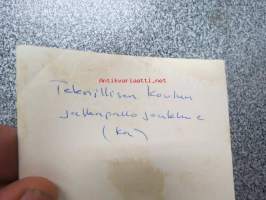 antikvariaatti.net
Teknillisen koulun
jalkapallojoukkue
(kn)